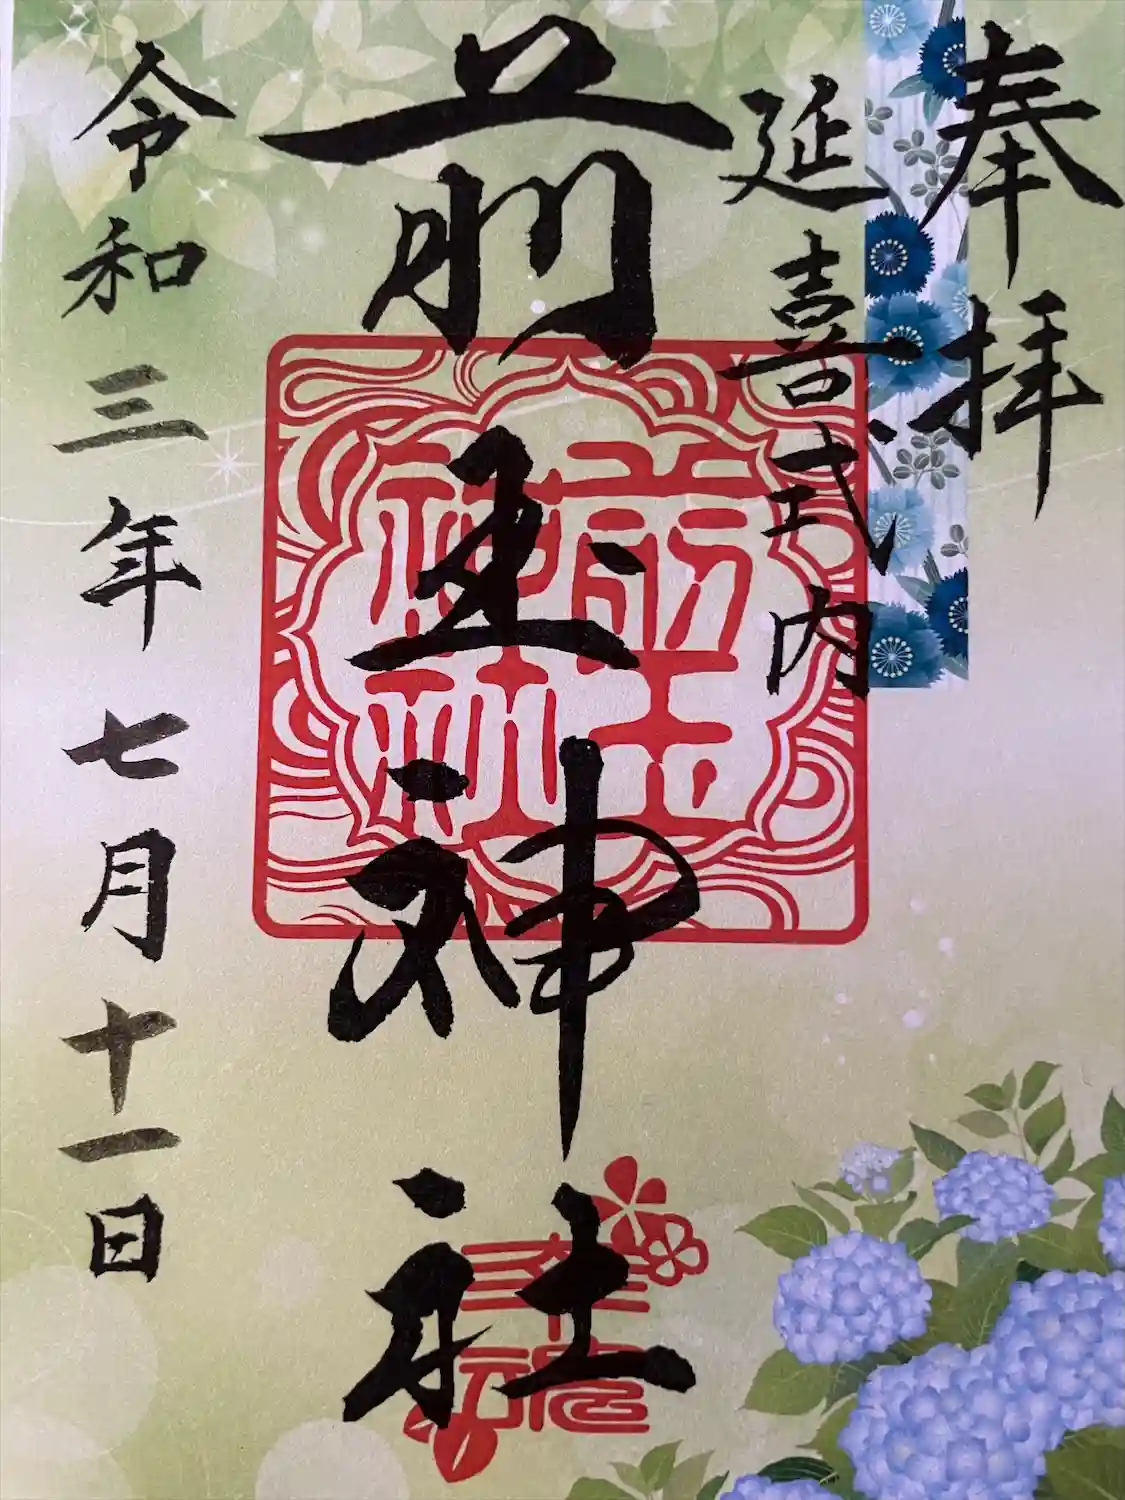 奉拝
延喜式内
前玉神社
令和三年七月十一日
前玉
神社